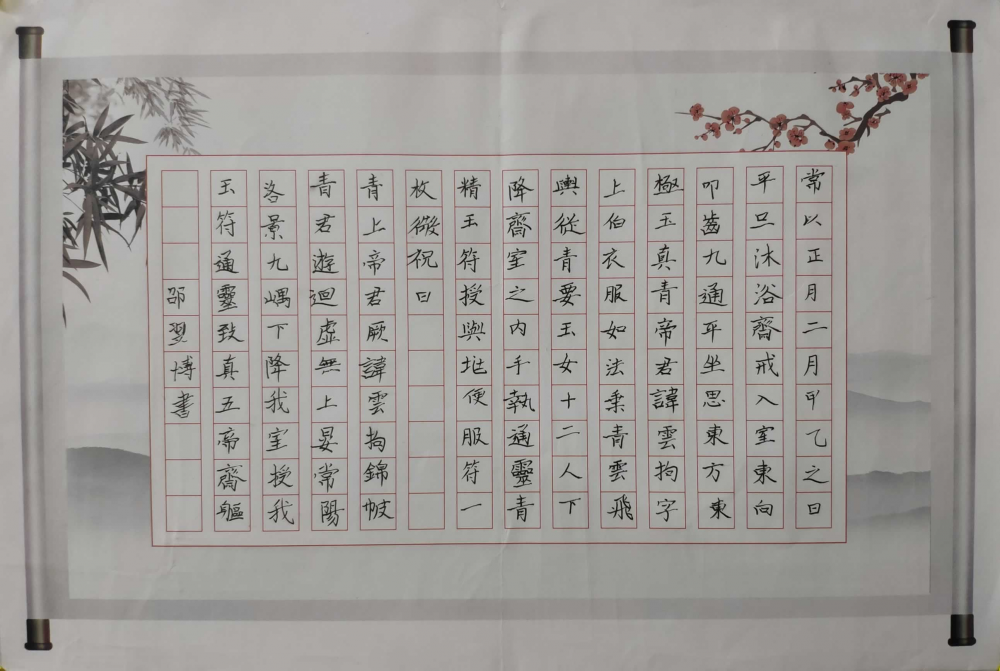 常以正月二月甲乙之日
平旦沐浴齋戒入室東向
叩齒九通平坐思東方東
極玉真青帝君諱雲拘字
上伯衣服如法乘青雲飛
輿從青要玉女十二人下
降齋室之内手執通靈青
精玉符授與地便服符一
枚微祝曰
青上帝君厥諱雲拘錦帔
青君遊迴虛無上晏常陽
洛景九嵎下降我室授我
玉符通靈致真五帝齋軀
邵翌博書